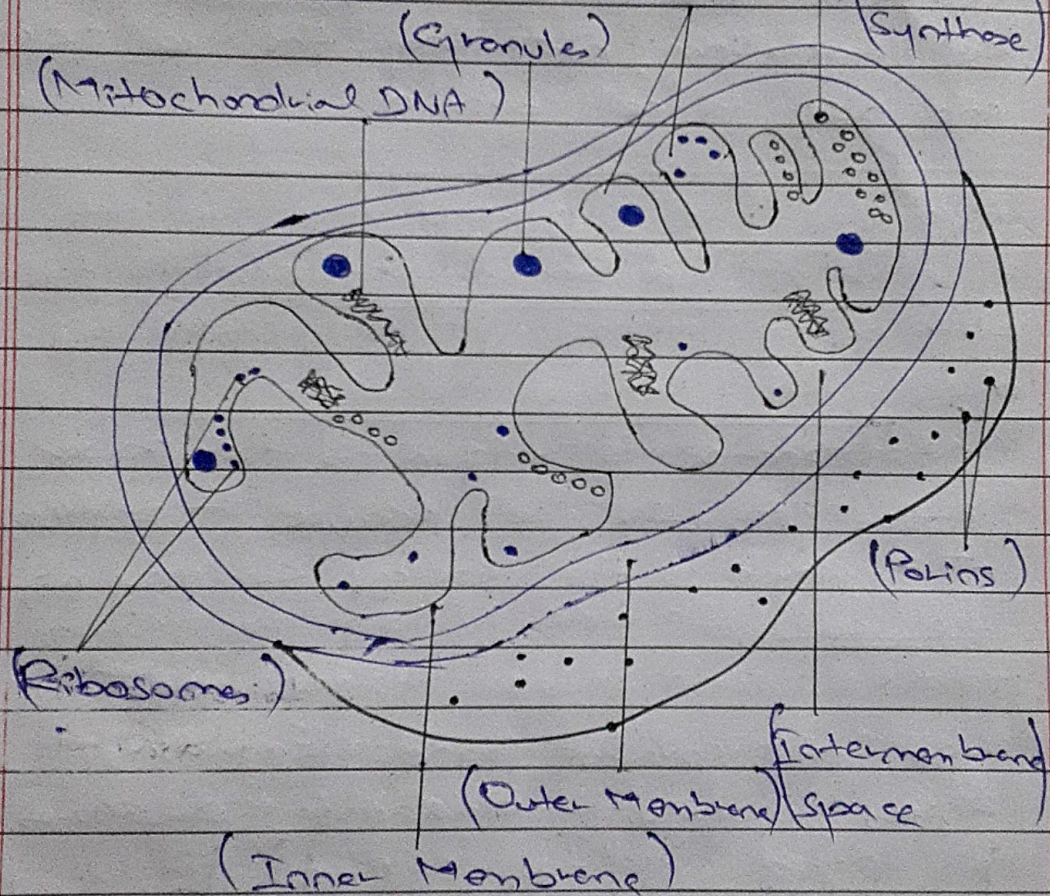 (Granules)
(Synthase)
(Mitochondrial DNA)
(Porins)
(Ribosomes)
(Intermenbrand
space
(Outer Menbrane)
(Inner Menbrane)